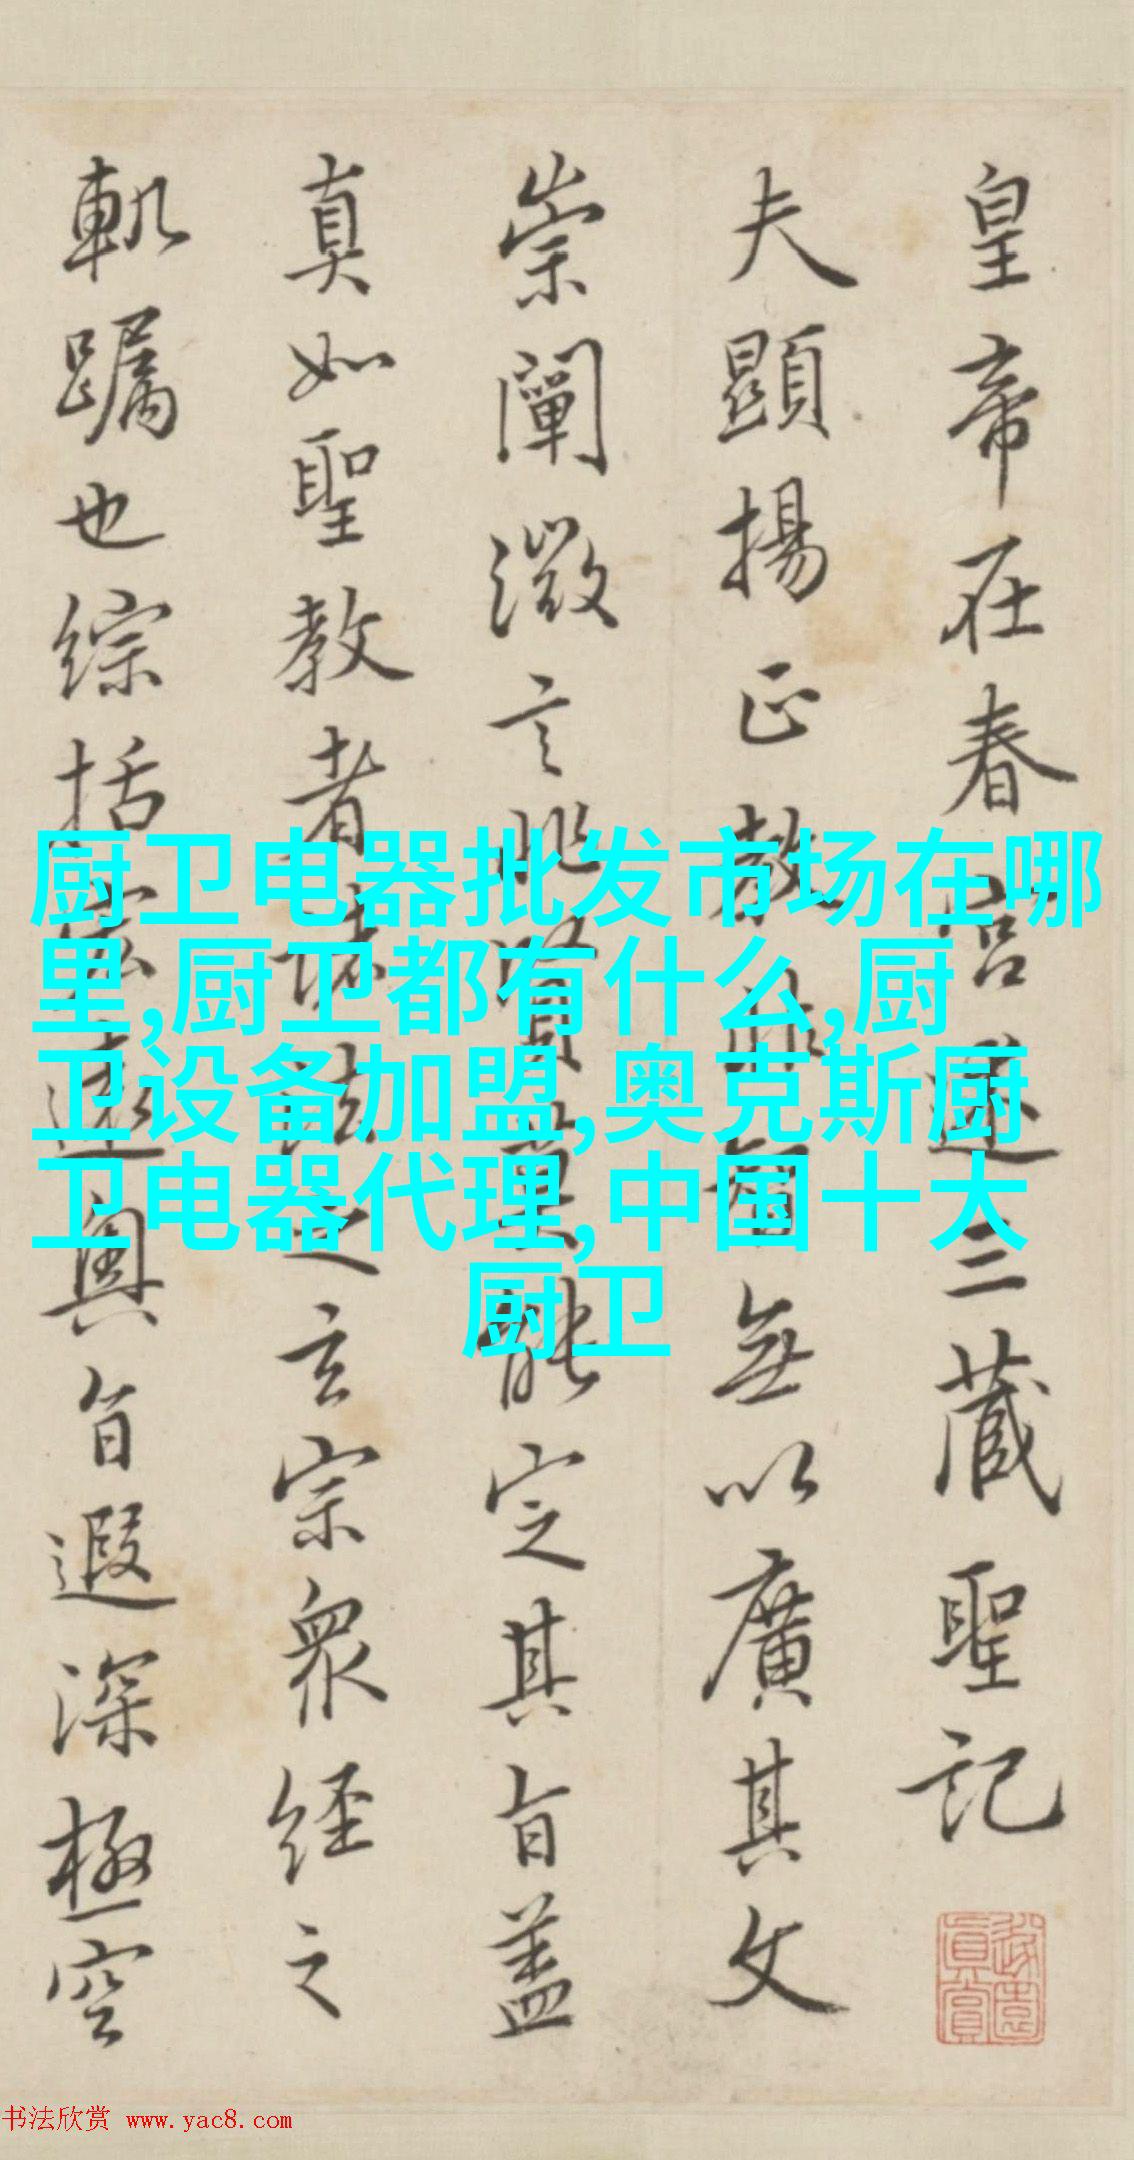 皇帝在春宮述三藏聖記
夫顯揚正教非智無以廣其文
崇闡微言非賢莫能定其旨蓋
真如聖教者諸法之玄宗眾經之
軌躅也綜括宏遠奧旨遐深極空
厨卫电器批发市场在哪
里,厨卫都有什么,厨
卫设备加盟,奥克斯厨
卫电器代理,中国十大
厨卫
书法欣赏 www.yac8.com